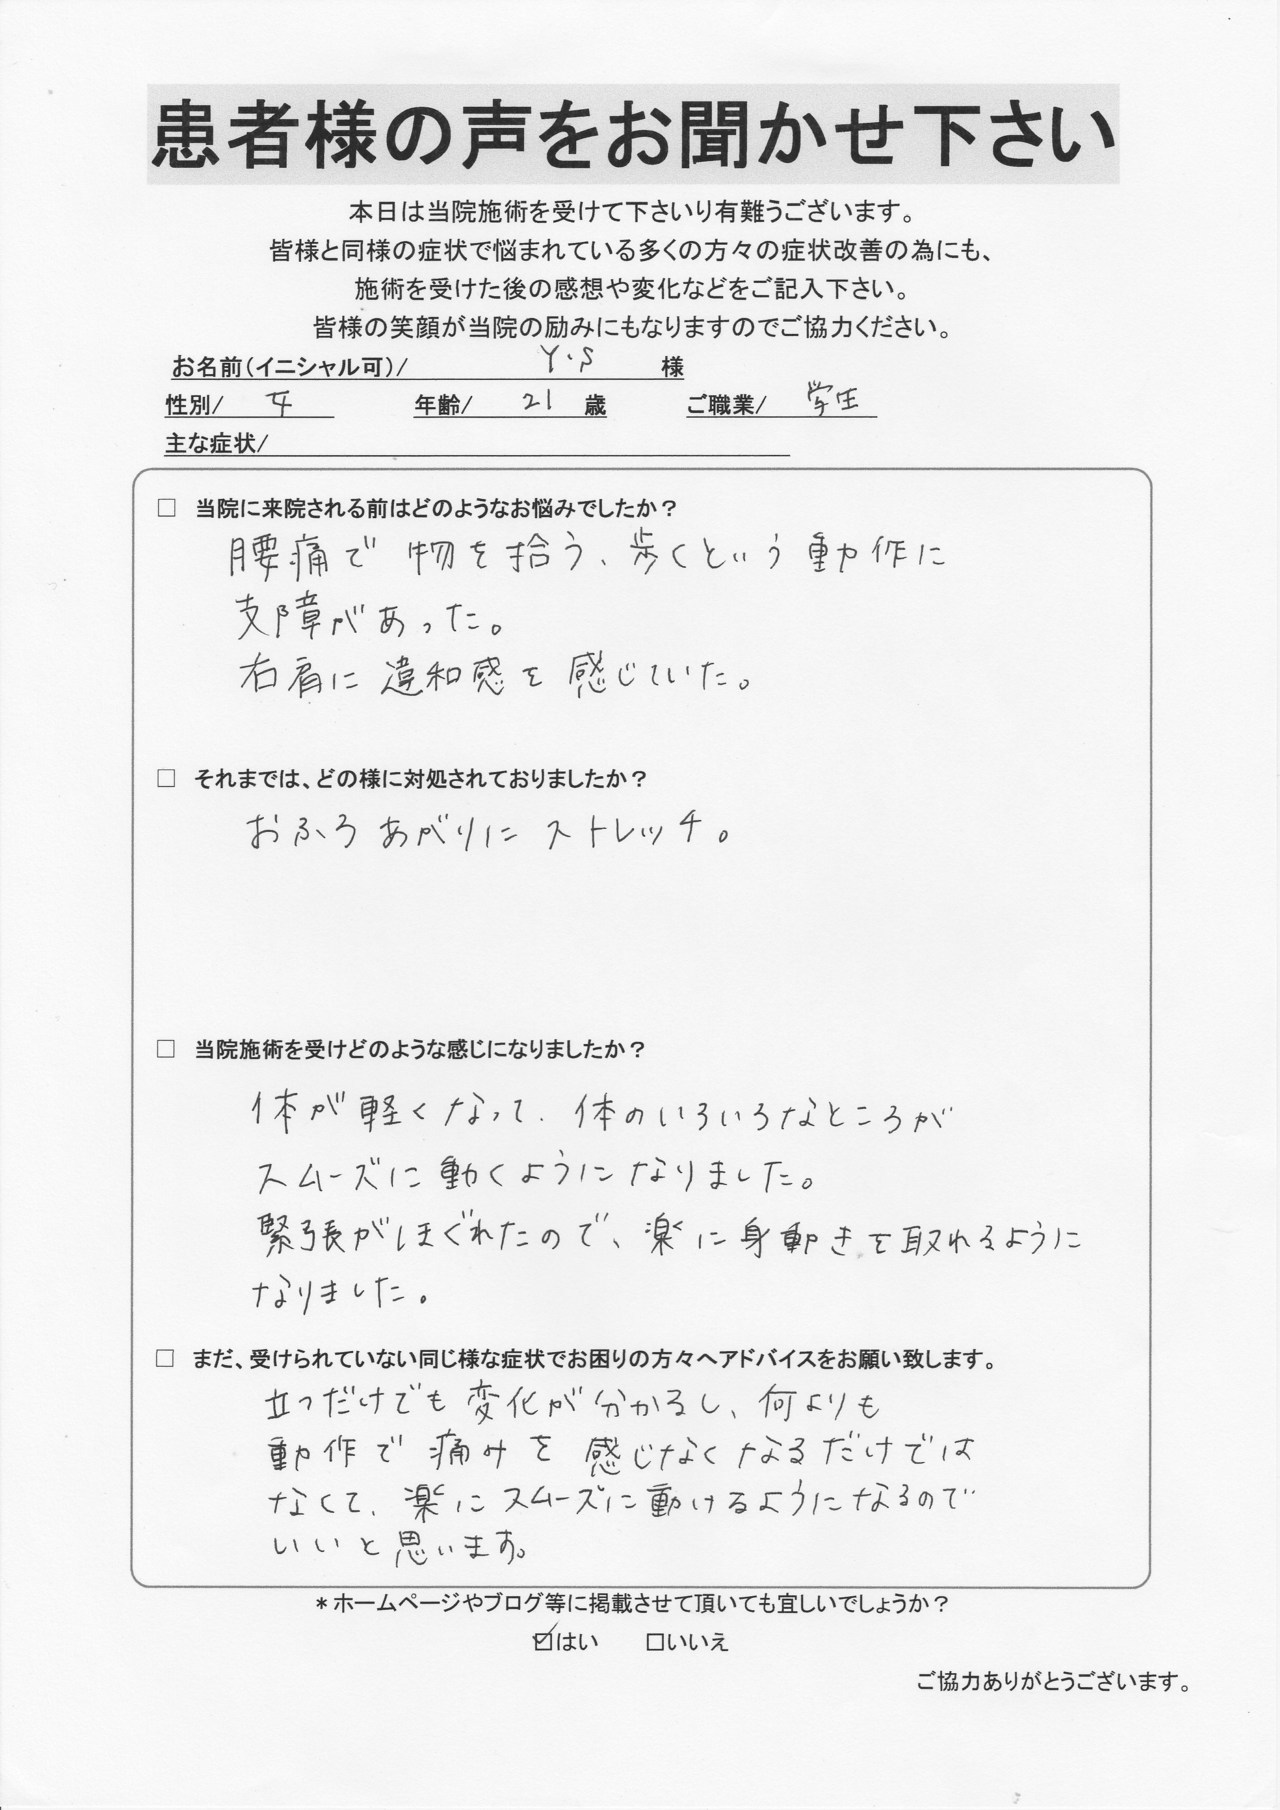 患者様の声をお聞かせ下さい
本日は当院施術を受けて下さいり有難うございます。
皆様と同様の症状で悩まれている多くの方々の症状改善の為にも、
施術を受けた後の感想や変化などをご記入下さい。
皆様の笑顔が当院の励みにもなりますのでご協力ください。
お名前(イニシャル可)/ Y.S 様
性別/ 女 年齢/ 21 歳 ご職業/ 学生
主な症状/
□ 当院に来院される前はどのようなお悩みでしたか？
腰痛で物を拾う、歩くという動作に
支障があった。
右肩に違和感を感じていた。
□ それまでは、どの様に対処されておりましたか？
おふろあがりにストレッチ。
□ 当院施術を受けどのような感じになりましたか？
体が軽くなって、体のいろいろなところが
スムーズに動くようになりました。
緊張がほぐれたので、楽に身動きを取れるように
なりました。
□ まだ、受けられていない同じ様な症状でお困りの方々へアドバイスをお願い致します。
立つだけでも変化が分かるし、何よりも
動作で痛みを感じなくなるだけでは
なくて、楽にスムーズに動けるようになるので
いいと思います。
*ホームページやブログ等に掲載させて頂いても宜しいでしょうか？
☑はい □いいえ
ご協力ありがとうございます。